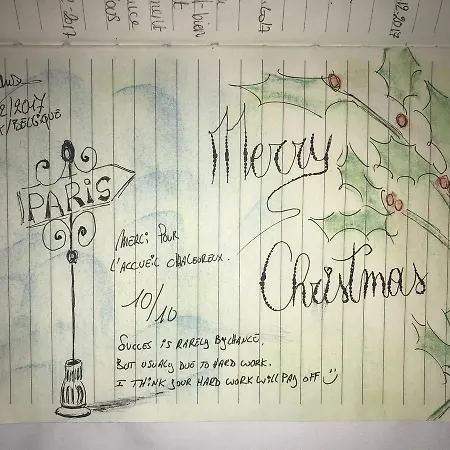 12.2017
2017
/2017
/BELGIQUE
PARIS
Merry
Christmas
MERCI POUR
L'ACCUEIL CHALEUREUX.
10/10
SUCCES IS RARELY BY CHANCE.
BUT USUALY DUE TO HARD WORK.
I THINK YOUR HARD WORK WILL PAY OFF